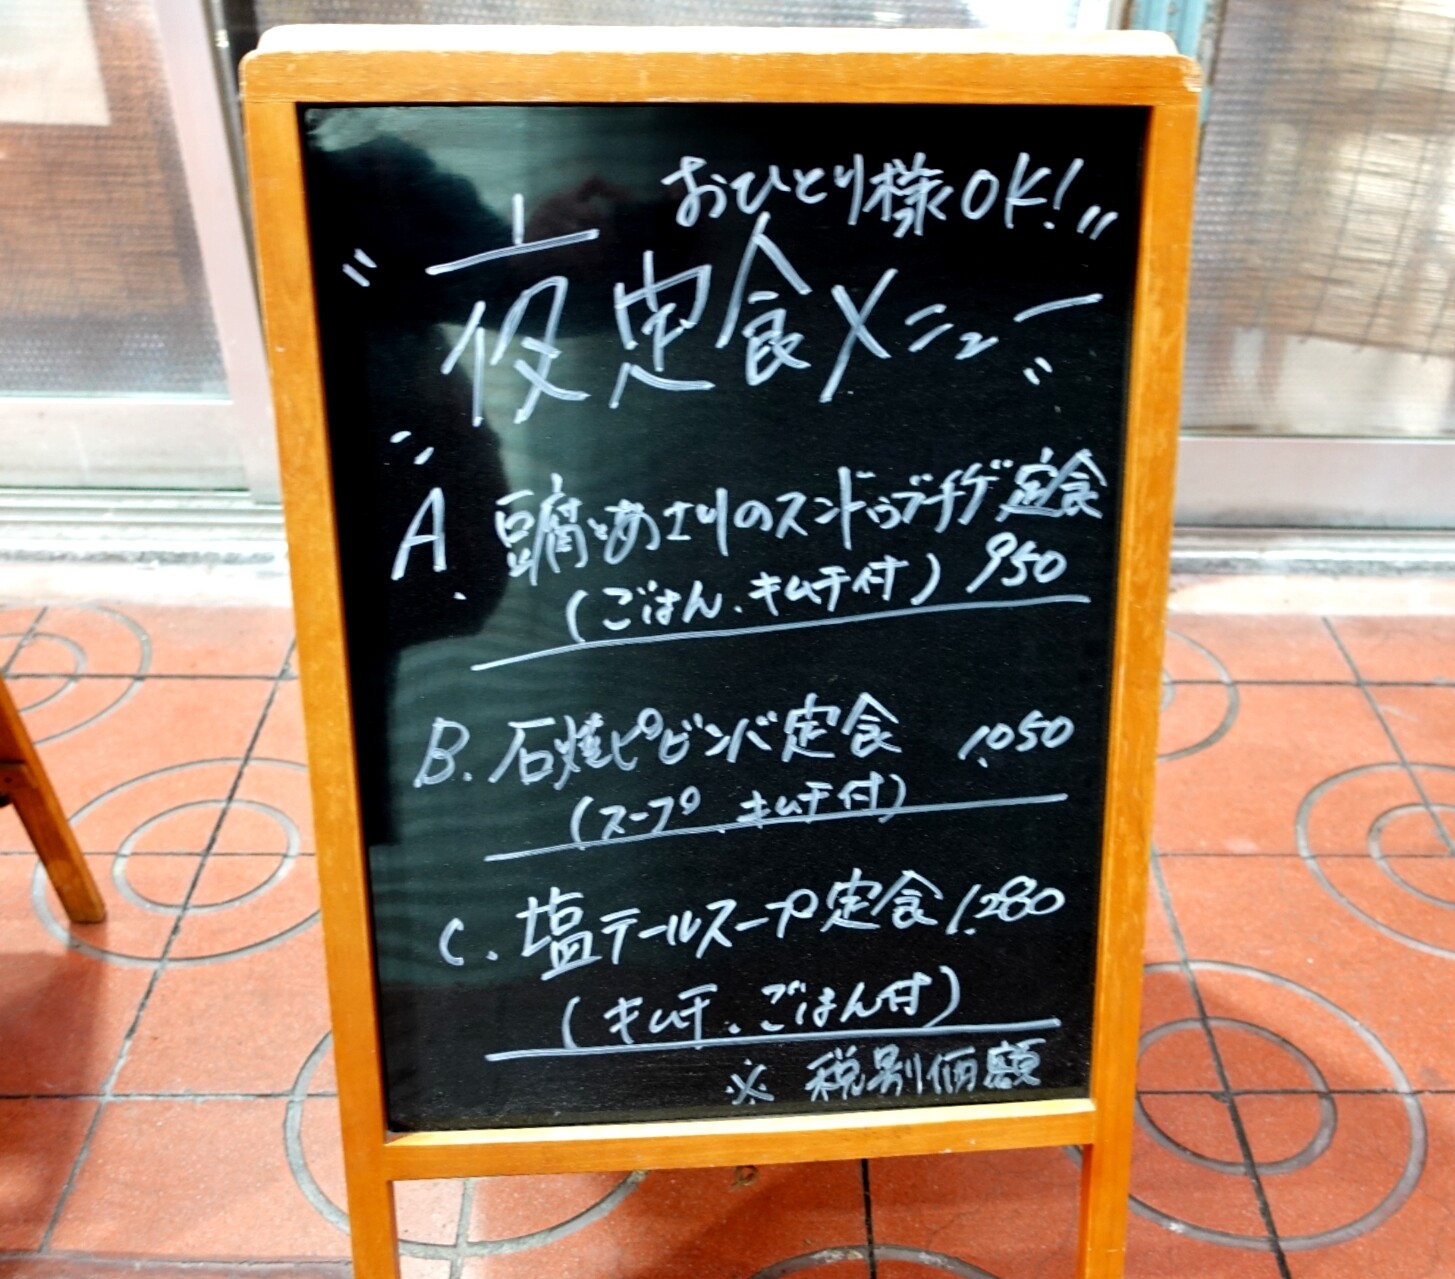 おひとり様OK!
夜定食メニュー
A. 豆腐とあさりのスンドゥブチゲ定食
(ごはん、キムチ付) 950
B. 石焼ピビンバ定食 1,050
(スープ、キムチ付)
C. 塩テールスープ定食 1,280
(キムチ、ごはん付)
※ 税別価額